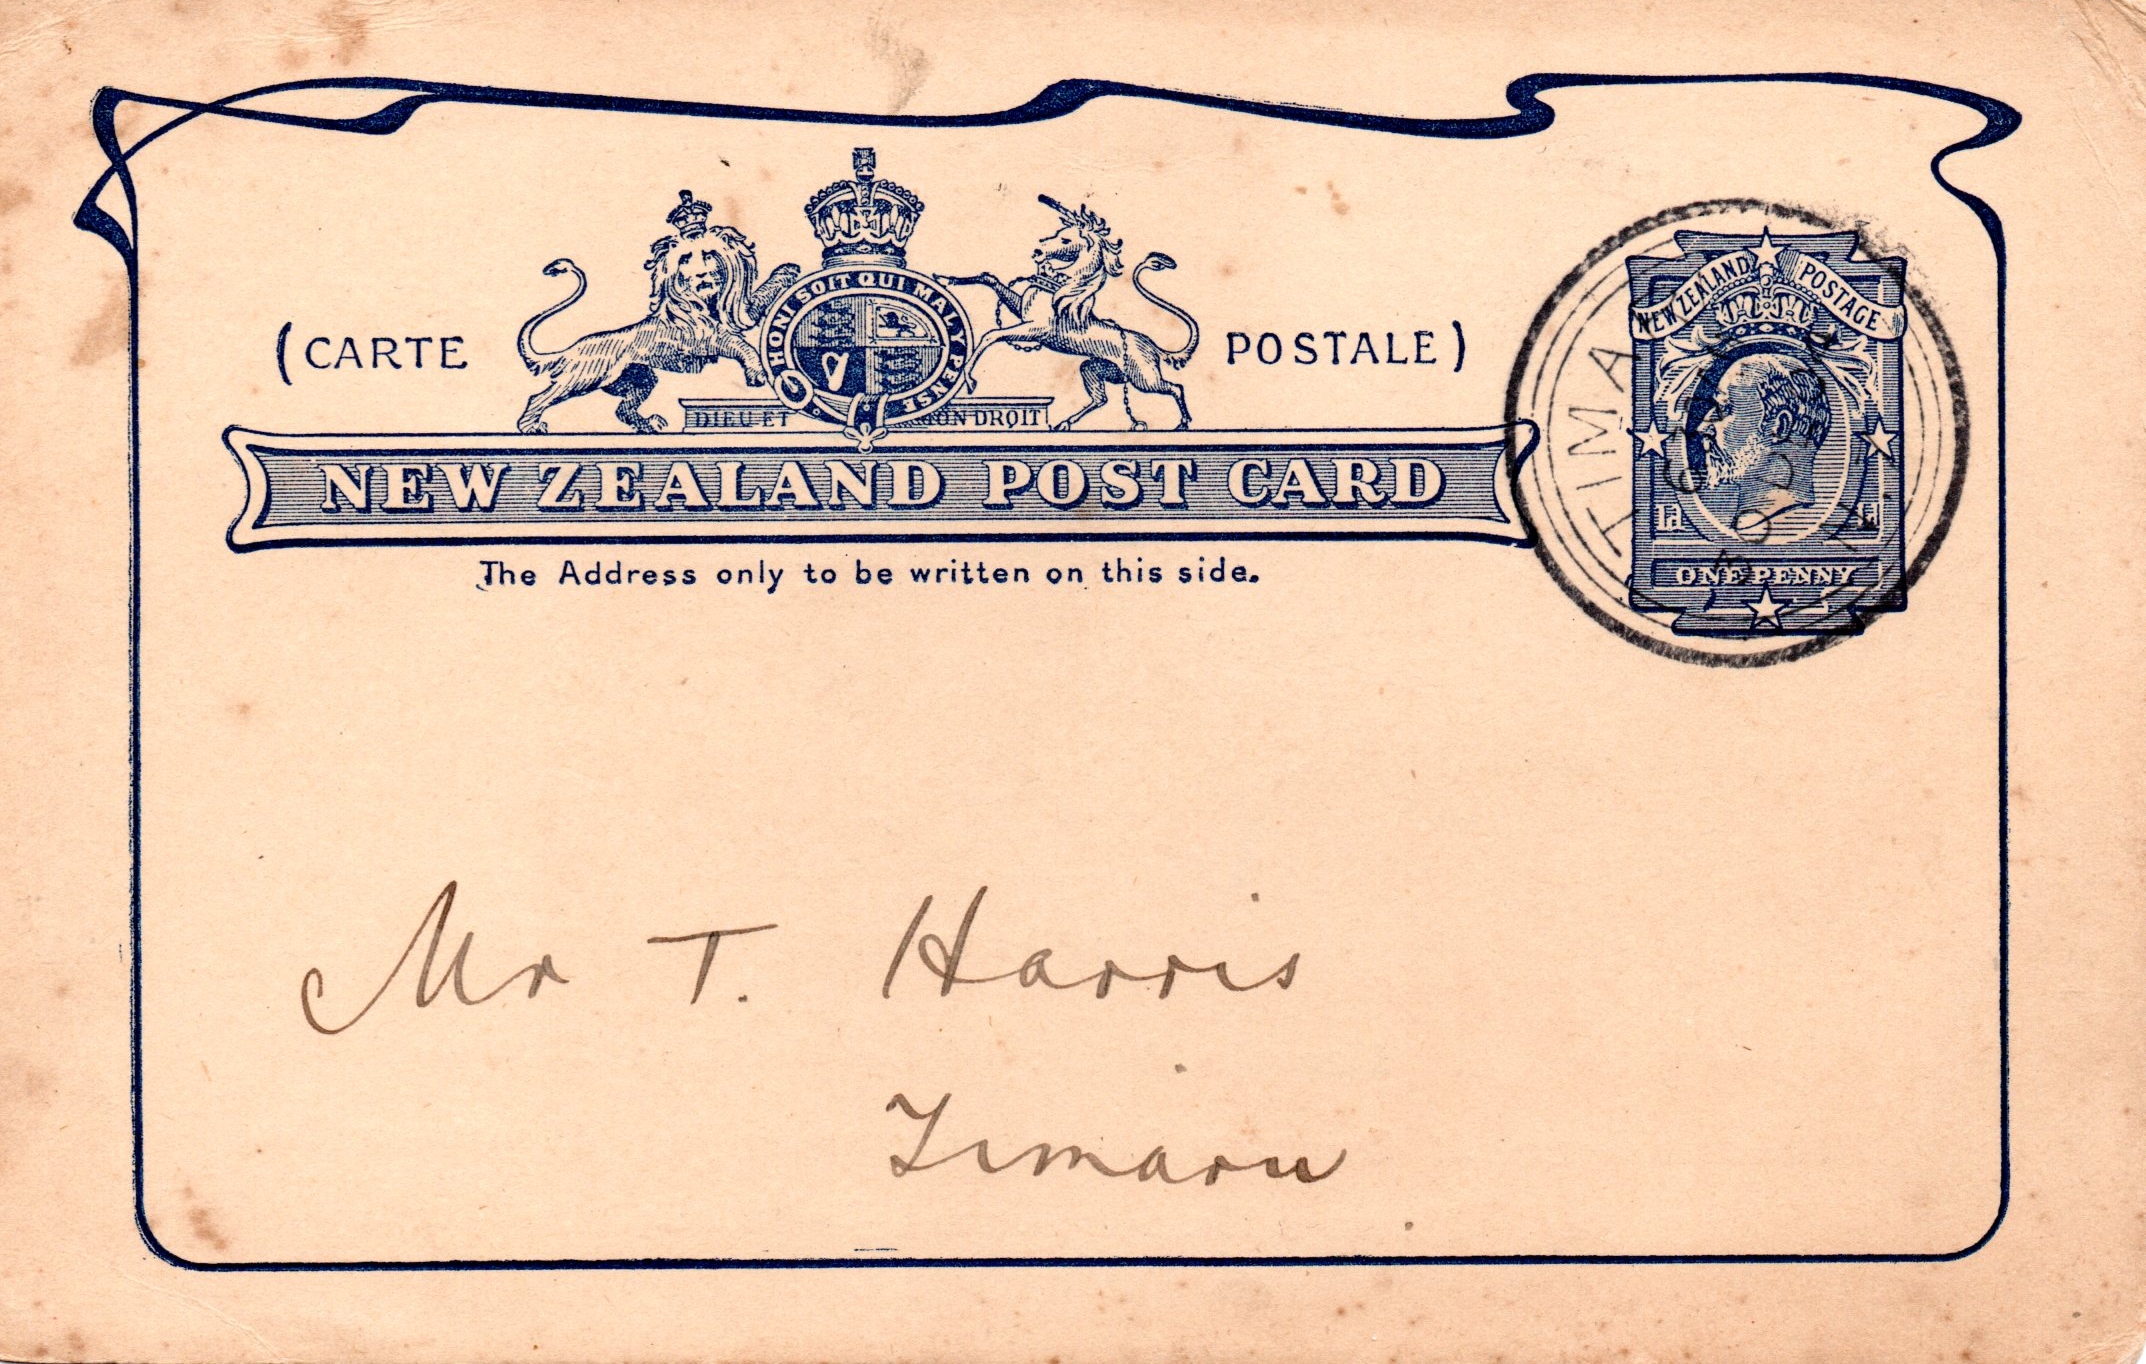 (CARTE POSTALE)
HONI SOIT QUI MAL Y PENSE
DIEU ET MON DROIT
NEW ZEALAND POST CARD
The Address only to be written on this side.
NEW ZEALAND POSTAGE
1d 1d
ONE PENNY
TIMA
Mr T. Harris
Timaru